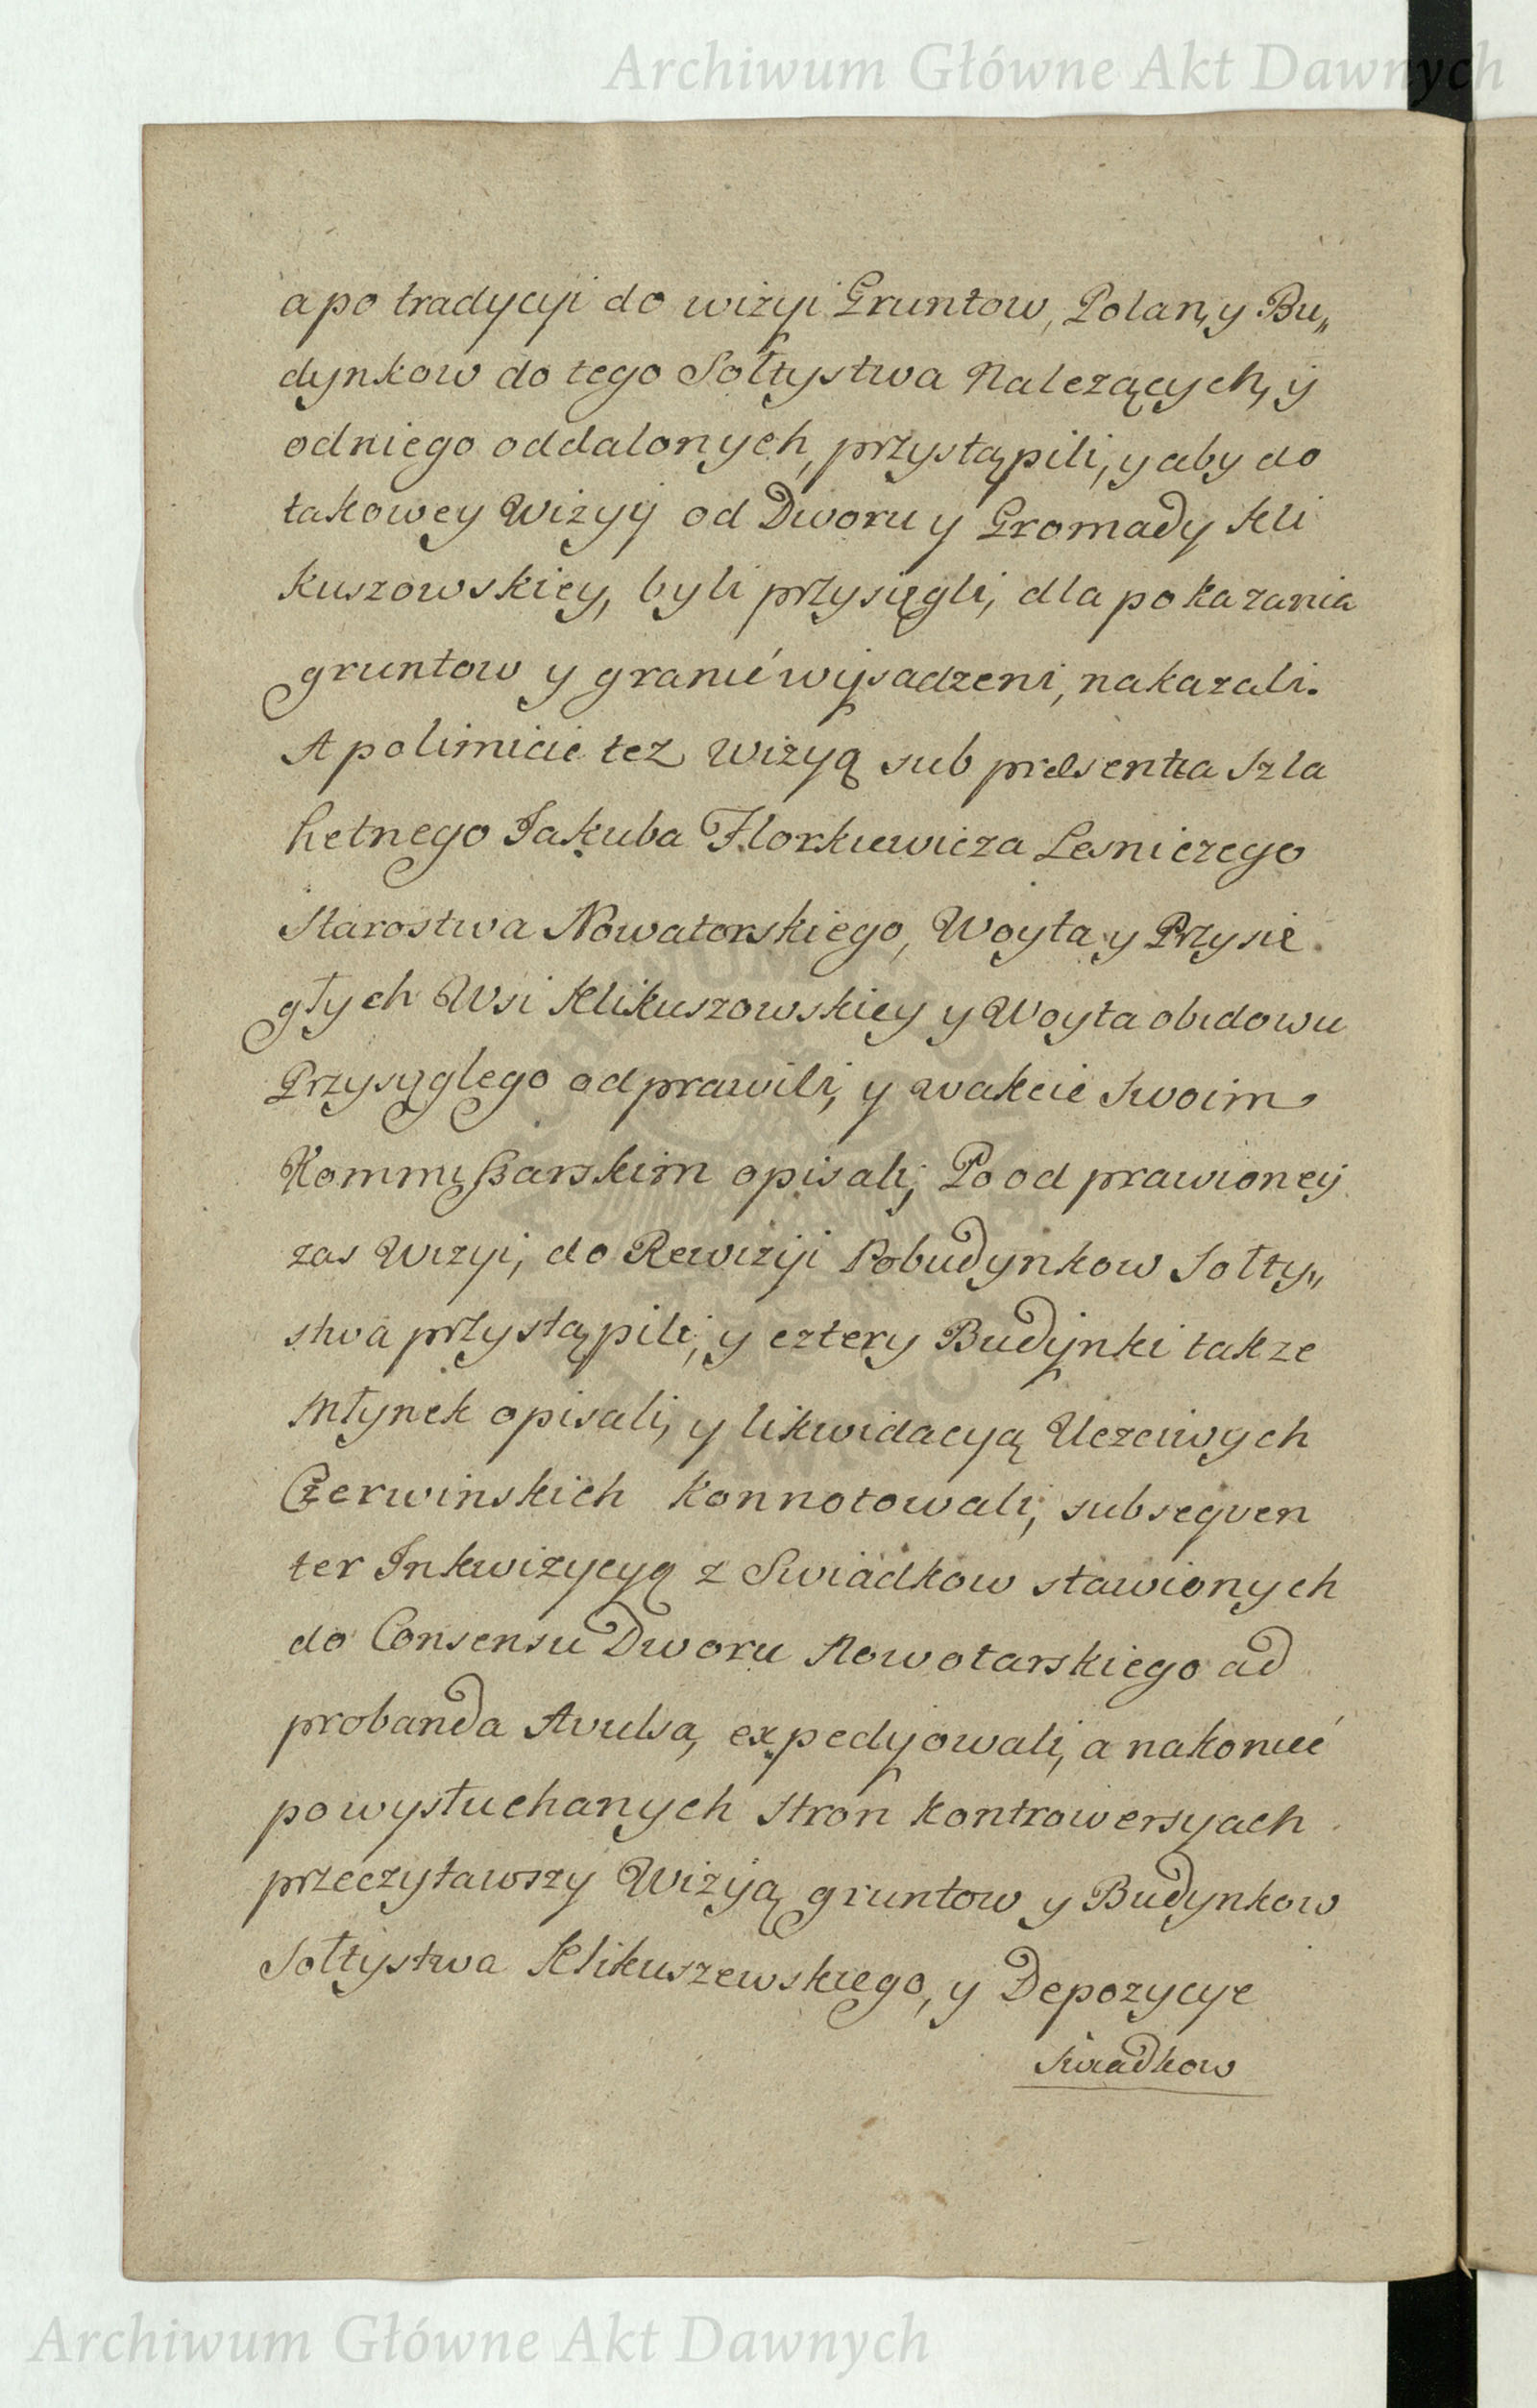 Archiwum Główne Akt Dawnych
a po tradycyi do wizyi Gruntow, Polan, y Bu„
dynkow do tego Sołtystwa Nalezących, y
od niego oddalonych, przystąpili, y aby do
takowey Wizyij od Dworu y Gromady Kli
kuszowskiey, byli przysięgli, dla pokazania
gruntow y granić wysadzeni, nakazali.
A polimicie tez wizyą sub præsentia Szla
hetnego Jakuba Florkiewicza Lesniczego
Starostwa Nowatorskiego, Woyta y Przysie
głych Wsi Klikuszowskiey y Woyta obidowu
Przysęglego odprawili, y w akcie Swoim
Kommißarskim opisali, Po od prawioney
zas Wizyi, do Rewizyi Pobudynkow Sołty„
stwa przystąpili, y cztery Budynki takze
Młynek opisali, y likwidacyą Uczciwych
Czerwinskich konnotowali, subsequen
ter Inkwizycyą z Swiadkow stawionych
do Consensu Dworu Nowotarskiego ad
probanda Avulsa, expedyowali, a nakonieć
po wysłuchanych Stron kontrowersyach
przeczytawszy Wizyją gruntow y Budynkow
Sołtystwa Klikuszewskiego, y Depozycye
Swiadkow
Archiwum Główne Akt Dawnych